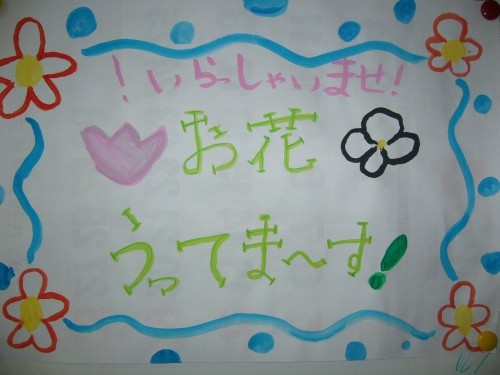 ！いらっしゃいませ！
お花
うってま～す！